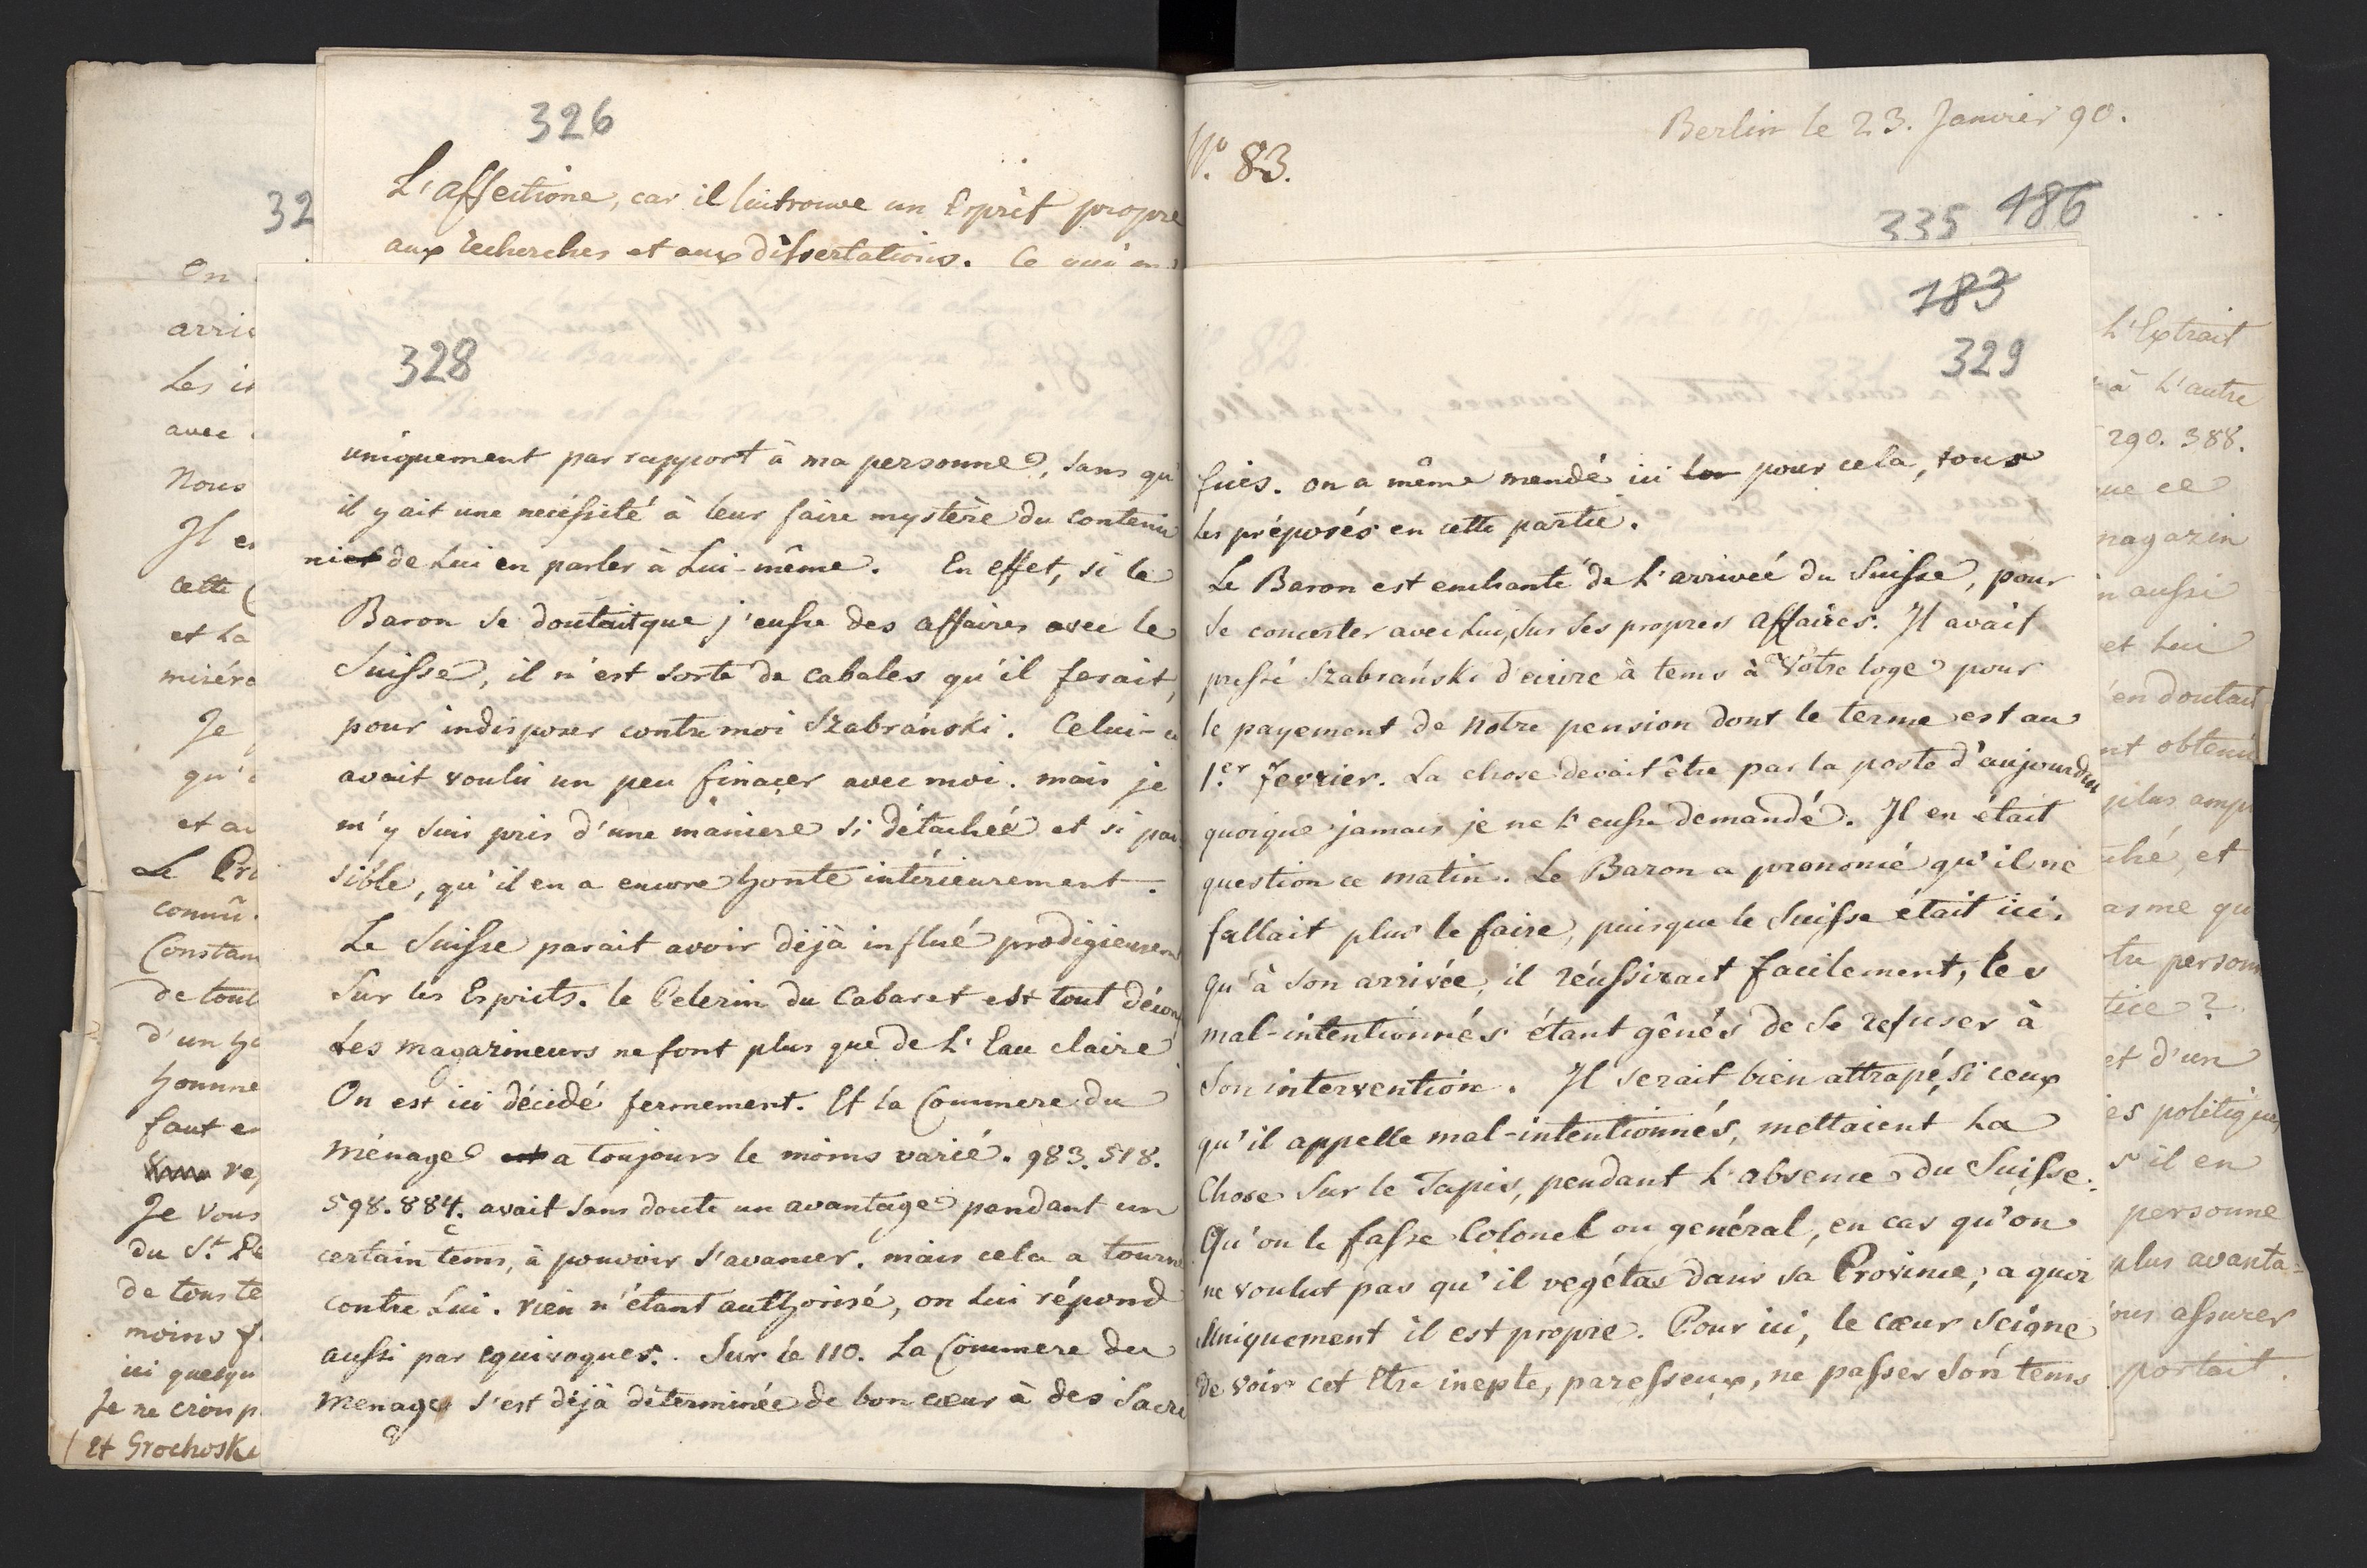 326
L'affectione, car il lui trouve un Esprit propre
aux recherches et aux dissertations. Ce qui
32
On
arri
Les i
avec
Nous
Il e
cette (
et La
miséra
Je
qu'
et a
Le Pri
connû
Constam
de tout
d'un h
homme
faut e
re
Je vous
du St. Pe
de tous te
moins f
ici quelqu
Je ne crois p
Et Grochosk
328
uniquement par rapport à ma personne, sans qu'
il y ait une necéssité à leur faire mystère du contenu
ni de Lui en parler à Lui-même. En effet, si le
Baron se doutait que j'eusse des affaires avec le
Suisse, il n'est sorte de cabales qu'il ferait,
pour indisposer contre moi Szabrański. Celui-ci
avait voulu un peu finaçer avec moi. mais je
m'y suis pris d'une maniere si détachée et si pai-
sible, qu'il en a encore honte intérieurement.
Le Suisse parait avoir déjà influé prodigieusement
Sur les Esprits. le Pelerin du Cabaret est tout
Les magazineurs ne font plus que de L'Eau claire
On est ici décidé fermement. Et la Commere du
Ménage a toujours le moins varié. 983. 518.
598. 884. avait sans doute un avantage pendant un
certain tems, à pouvoir s'avancer. mais cela a tourné
contre Lui. rien n'étant authorisé, on Lui répond
aussi par equivoques. Sur le 110. La Commere du
menage s'est déjà déterminée de bon cœur à des Sacri
N° 83.
Berlin le 23. Janvier 90.
335 186
183
329
fices. on a même mandé ici pour cela, tous
les préposés en cette partie.
Le Baron est enchanté de L'arriveé du Suisse, pour
se concerter avec Lui, sur ses propres affaires. Il avait
pressé Szabrański d'ecrire à tems à Votre loge pour
le payement de Notre pension dont le terme est au
1.er Fevrier. La chose devait être par la poste d'aujourdhui
quoique jamais je ne L'eusse demandé. Il en était
question ce matin. Le Baron a prononcé qu'il ne
fallait plus le faire, puisque le Suisse était ici.
qu'à son arrivée, il réussirait facilement, les
mal-intentionnés étant gênés de se refuser à
Son intervention. Il serait bien attrapé, si ceux
qu'il appelle mal-intentionnés, mettaient La
Chose sur le Tapis, pendant L'absence du Suisse.
Qu'on le fasse Colonel ou genéral, en cas qu'on
ne voulut pas qu'il vegétas dans sa Province; a quoi
Uniquement il est propre. Pour ici, le cœur seigne
de voir cet Etre inepte, paresseux, ne passer son tems
L'Extrait
à L'autre
290. 388.
que ce
magazin
n aussi
et Lui
s'en doutait
nt obtenu
plus amp
ché, et
asme qu
tre person
tice?
et d'un
es politiques
s'il en
personne
plus avanta-
ous assurer
portait.